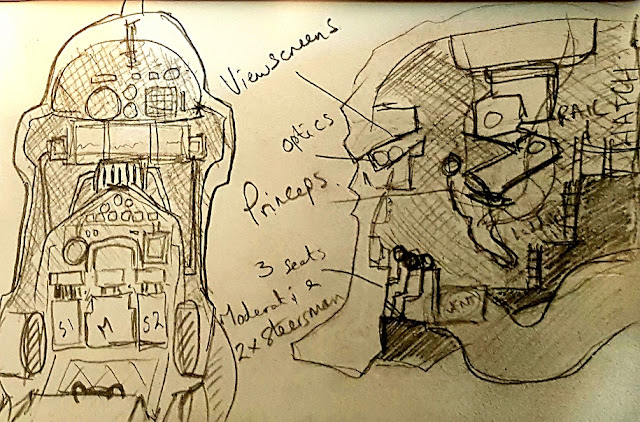 Viewscreens
optics
Princeps.
3 seats
Moderati &
2x steersman
S1
M
S2
RAIL
HATCH
VENT